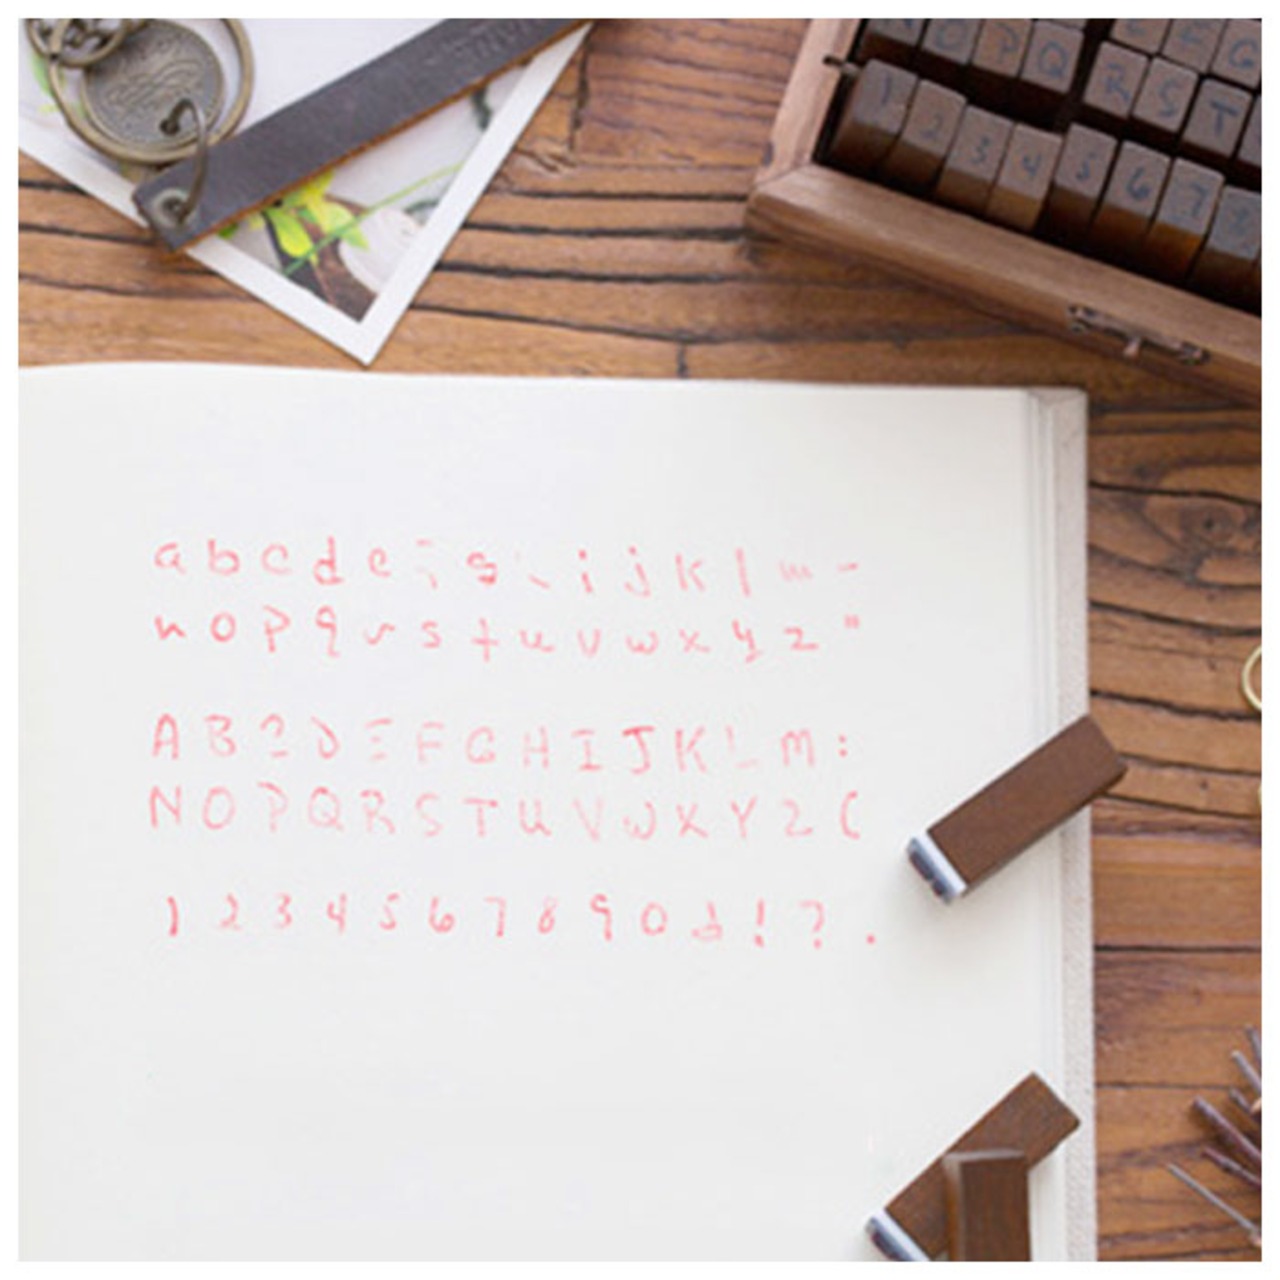 O P Q
R S T
1 2 3 4 5 6 7 8
a b c d e s i j k l m -
n o p q r s t u v w x y z "
A B C D E F G H I J K L M :
N O P Q R S T U V W X Y Z (
1 2 3 4 5 6 7 8 9 0 & ! ? .